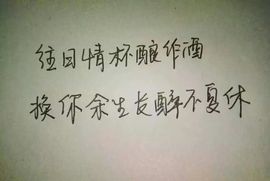 往日情杯酿作酒
换你余生长醉不复休